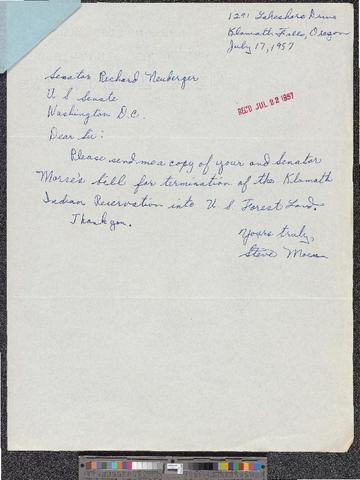 1291 Lakeshore Drive
Klamath Falls, Oregon
July 17, 1957
Senator Richard Neuberger
U S Senate
Washington D.C.
REC'D JUL 22 1957
Dear Sir:
Please send me a copy of your and Senator
Morse's bill for termination of the Klamath
Indian Reservation into U S Forest Land.
Thank you.
Yours truly,
Steve